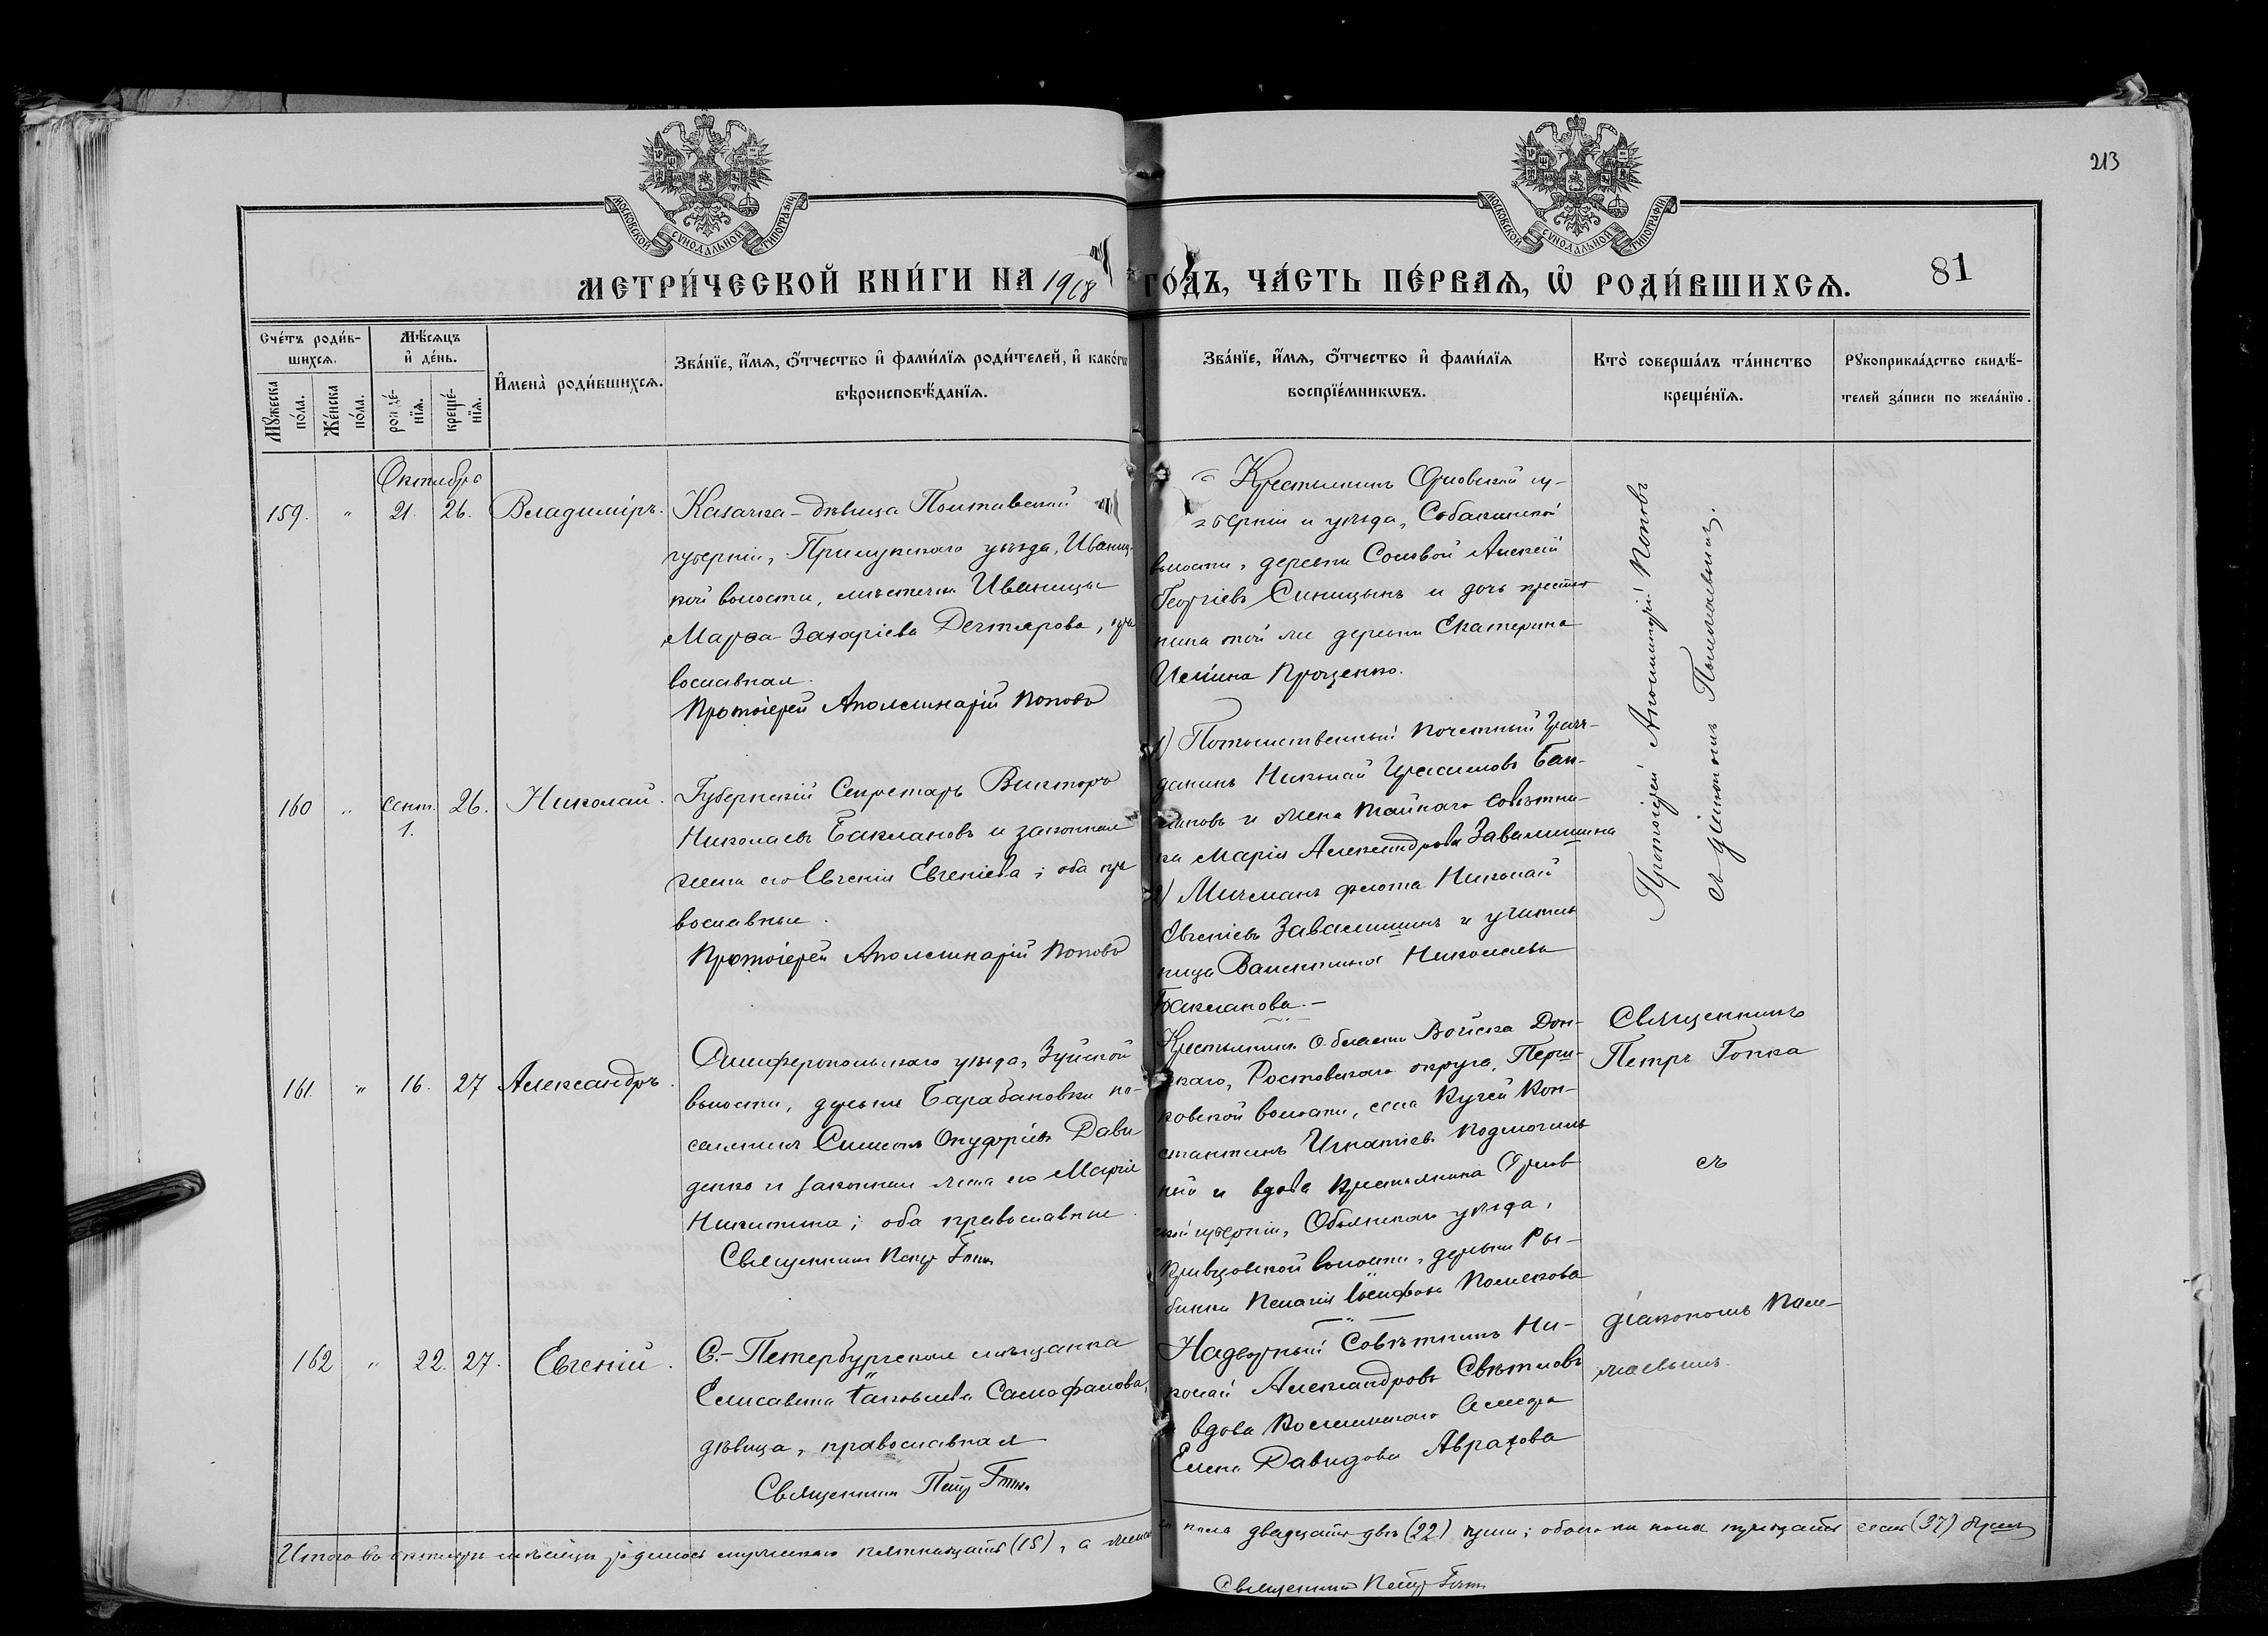 213
МОСКОВСКОЙ СѴНОДАЛЬНОЙ ТИПОГРАФІИ
МОСКОВСКОЙ СѴНОДАЛЬНОЙ ТИПОГРАФІИ
МЕТРИ́ЧЕСКОЙ КНИ́ГИ НА 1918 ГО́ДЪ, ЧА́СТЬ ПЕ́РВАѦ, Ѡ҆ РОДИ́ВШИХСѦ.
81
Сче́тъ роди́в-
шихсѧ.
Мꙋ́жеска по́ла.
Же́нска по́ла.
Мѣ́сѧцъ
и҆ де́нь.
рожде́-
нїѧ.
креще́-
нїѧ.
И҆мена̀ роди́вшихсѧ.
Зва́нїе, и҆́мѧ, ѻ҆́тчество и҆ фами́лїѧ роди́телей, и҆ како́гѡ
вѣроисповѣ́данїѧ.
Зва́нїе, и҆́мѧ, ѻ҆́тчество и҆ фами́лїѧ
воспрїе́мникѡвъ.
Кто̀ соверша́лъ та́инство
креще́нїѧ.
Рꙋкоприкла́дство свидѣ́-
телей за́писи по жела́нїю.
Октябрь
159. " 21. 26. Владиміръ.
Казачка-дѣвица Полтавской
губерніи, Прилукскаго уѣзда, Иваниц-
кой волости, мѣстечка Иваницы
Марѳа Захаріева Дегтярова, пра
вославная.
Протоіерей Аполлинарій Поповъ
Крестьянинъ Орловской гу-
берніи и уѣзда, Собакинской
волости, деревни Алексій
Георгіевъ Синицынъ и дочь крестья
нина той же деревни Екатерина
Проценко.
Протоіерей Аполлинарій Поповъ
съ діакономъ
160 " Сент. 1. 26. Николай.
Губернскій Секретарь Викторъ
Николаевъ Баклановъ и законная
жена его Евгенія Евгеніева; оба пра
вославные.
Протоіерей Аполлинарій Поповъ
1) Потомственный почетный граж-
данинъ Николай Герасимовъ Бак-
лановъ и жена тайнаго совѣтни-
ка Марія Александрова Завалишина
2) Мичманъ флота Николай
Евгеніевъ Завалишинъ и учитель
ница Валентина Николаева
Бакланова.-
161. " 16. 27 Александръ.
Симферопольскаго уѣзда, Зуйской
волости, деревни Барабановки по-
селянинъ Симеонъ Онуфріевъ Дави
денко и законная жена его Марія
Никитина; оба православные.
Священникъ Петръ Гопка
Крестьянинъ Области Войска Дон-
скаго, Ростовскаго округа,
ковской волости, села Кугей Кон-
стантинъ Игнатіевъ Подмогиль
ный и вдова крестьянина Орлов
ской губерніи, уѣзда,
Кривцовской волости, деревни Ры-
бинки Пелагія Іосифова Полякова
Священникъ
Петръ Гопка
съ
162 " 22. 27. Евгеній.
С.-Петербургская мѣщанка
Елисавета Яковлева Самофалова,
дѣвица, православная
Священникъ Петръ Гопка
Надворный Совѣтникъ Ни-
колай Александровъ Свѣтловъ
вдова
Елена Давидова Абрахова
діакономъ
Итого въ октябрѣ мѣсяцѣ родилось мужескаго пятнадцать (15), а женска
го пола двадцать два (22) души; обоего же пола тридцать семь (37) душъ
Священникъ Петръ Гопка